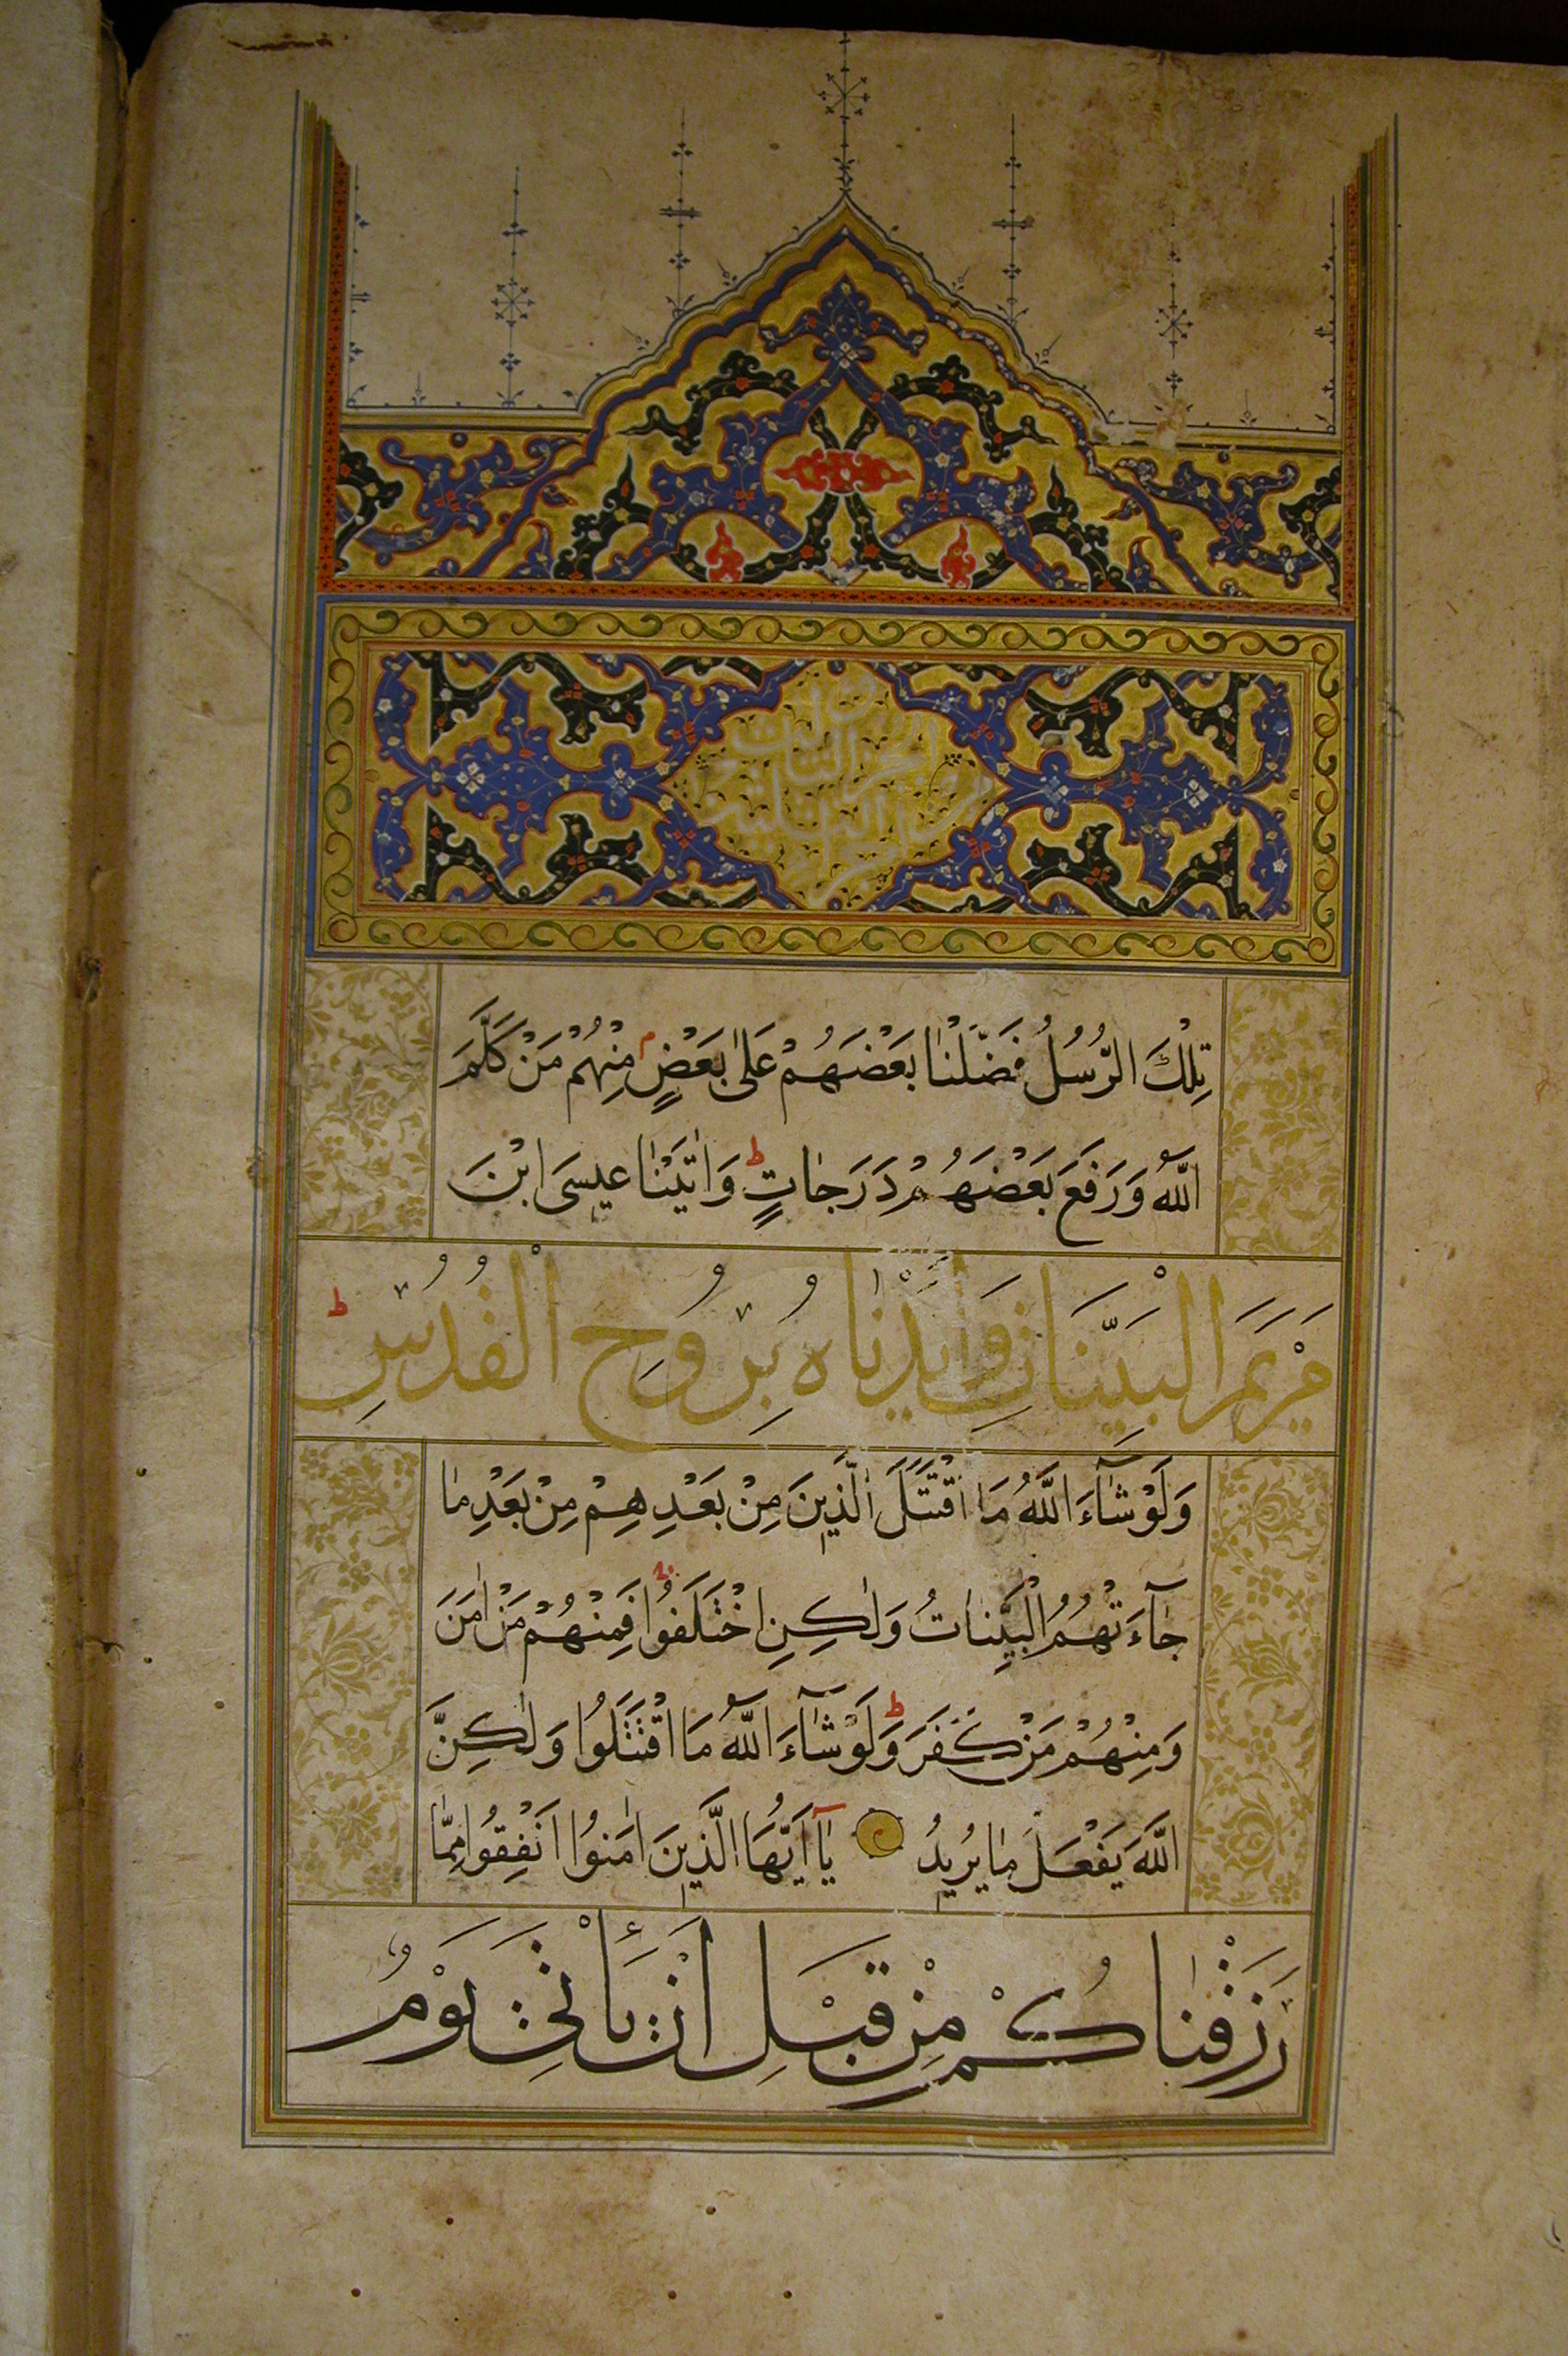 تِلْكَ الرُّسُلُ فَضَّلْنَا بَعْضَهُمْ عَلىٰ بَعْضٍ م مِنْهُمْ مَنْ كَلَّمَ
اللّٰهُ وَرَفَعَ بَعْضَهُمْ دَرَجَاتٍ ط وَاٰتَيْنَا عيسَى ابْنَ
مَرْيَمَ الْبَيِّنَاتِ وَاَيَّدْنَاهُ بِرُوحِ الْقُدُسِ ط
وَلَوْ شَآءَ اللّٰهُ مَا اقْتَتَلَ الَّذِينَ مِنْ بَعْدِهِمْ مِنْ بَعْدِ مَا
جَآءَتْهُمُ الْبَيِّنَاتُ وَلٰكِنِ اخْتَلَفُوا فَمِنْهُمْ مَنْ اٰمَنَ
وَمِنْهُمْ مَنْ كَفَرَ ط وَلَوْ شَآءَ اللّٰهُ مَا اقْتَتَلُوا وَلٰكِنَّ
اللّٰهَ يَفْعَلُ مَا يُرِيدُ يَآ اَيُّهَا الَّذِينَ اٰمَنُوا اَنْفِقُوا مِمَّا
رَزَقْنَاكُمْ مِنْ قَبْلِ اَنْ يَأْتِيَ يَوْمٌ